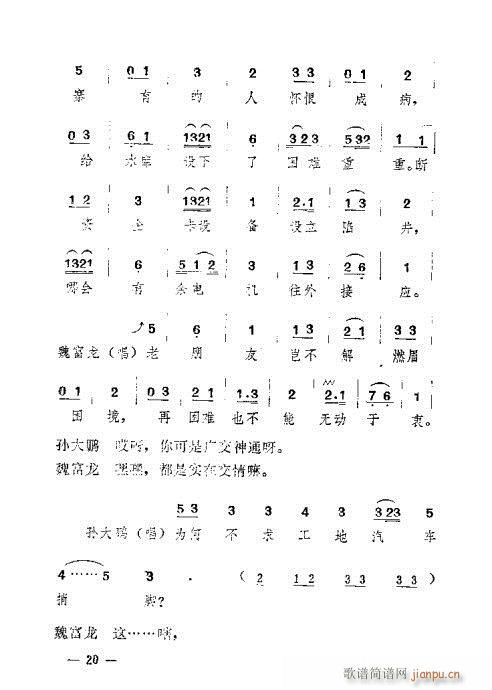 5 | 0 1 | 3 | 2 | 3 3 | 0 1 | 2
寨 有 的 人 怀恨 成 病,
0 3 | 6 1 | 1321 | 6 | 3 2 3 | 5 3 2 | 1 1
给 水库 设下 了 困难 重 重。断
1 2 | 3 | 1321 | 6 | 2·1 | 1 3 | 2
安 全 卡设 备 设立 陷 井,
1321 | 6 | 5 1 2 | 3 | 1 3 | 2 6 | 1
哪会 有 余电 机 往外 接 应。
5 | 6 | 1 | 3 | 1 3 | 2 1 | 3 3
魏富龙(唱)老 朋 友 岂不 解 燃眉
0 1 | 2 | 0 3 | 2 1 | 1·3 | 2·1 | 7 6 | 1
困 境, 再 困难 也不 能 无动 于 衷。
孙大鹏 哎哟,你可是广交神通呀。
魏富龙 嘿嘿,都是实在交情嘛。
5 3 | 5 | 3 | 4 | 3 | 3 2 3 | 5
孙大鹏(唱)为何 不 求 工 地 汽 车
4……5 | 3· | ( 2 | 1 2 | 3 3 | 3 3 )
捎 脚?
魏富龙 这……嗐,
— 20 —
歌谱简谱网
jianpu.cn